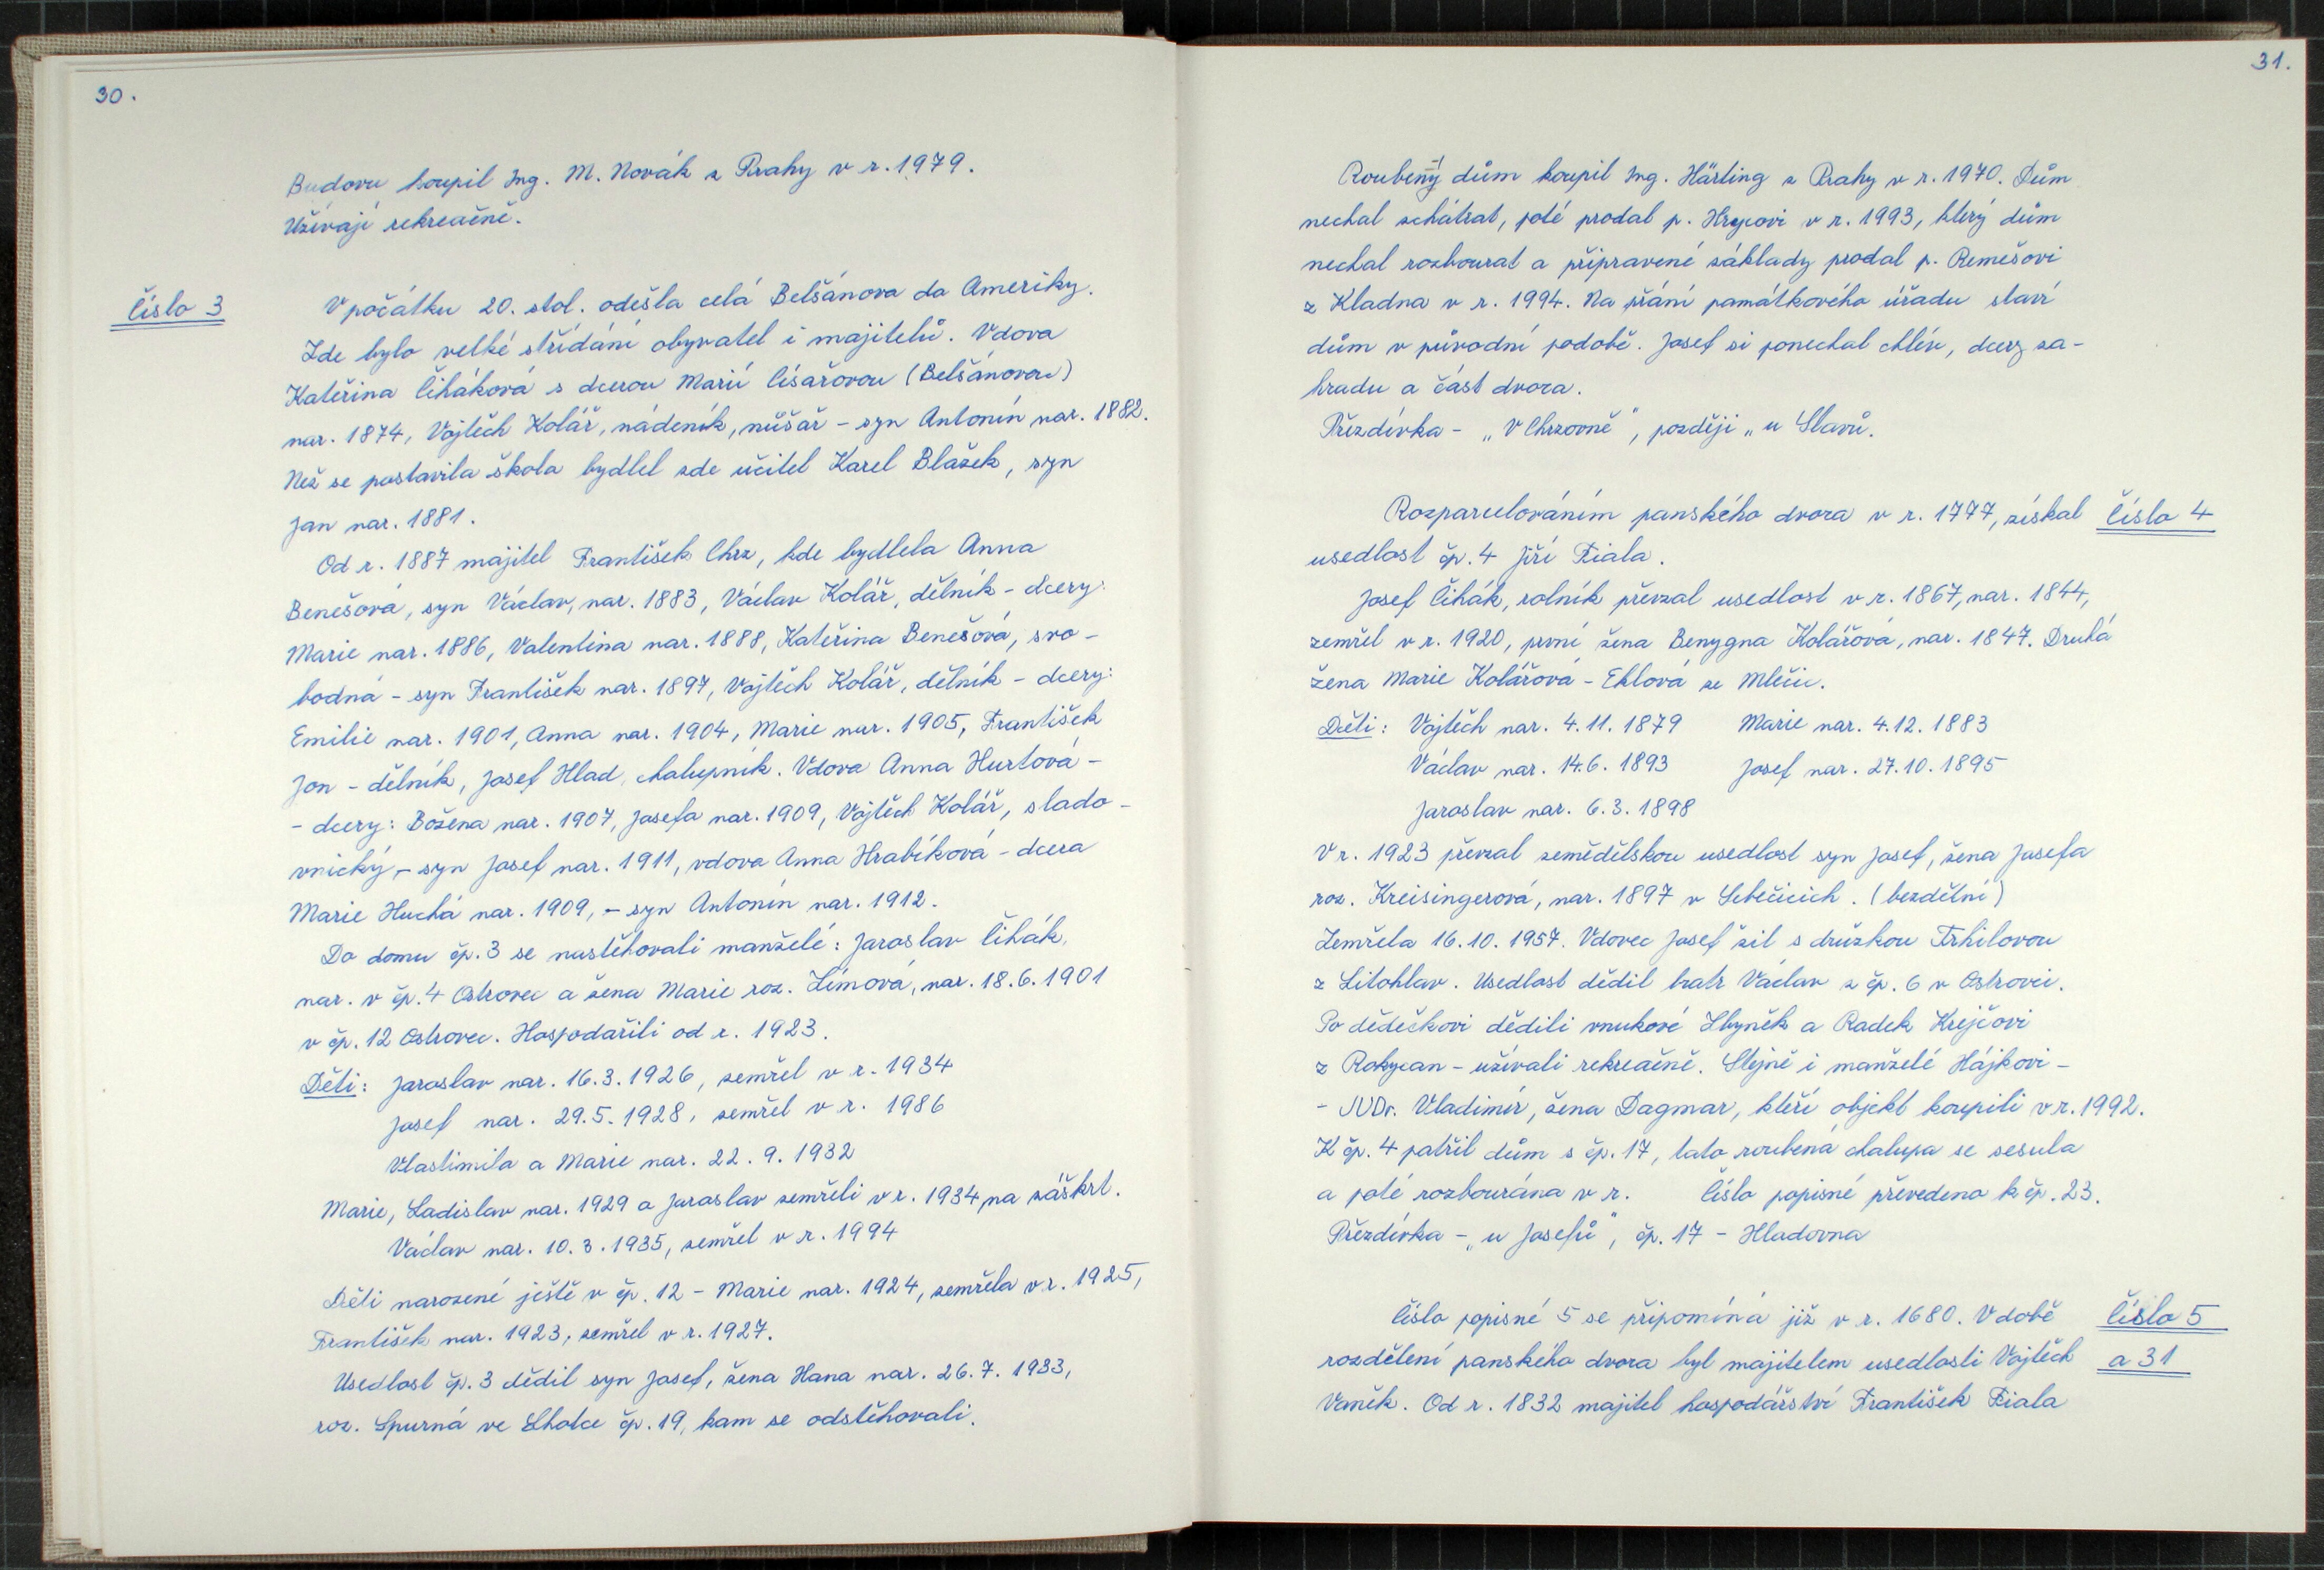 30.
Budovu koupil Ing. M. Novák z Prahy v r. 1979.
Užívají rekreačně.
Číslo 3
V počátku 20. stol. odešla celá Belšánova do Ameriky.
Zde bylo velké střídání obyvatel i majitelů. Vdova
Kateřina Čiháková s dcerou Marií Císařovou (Belšánovou)
nar. 1874, Vojtěch Kolář, nádeník, nůšař - syn Antonín nar. 1882.
Než se postavila škola bydlel zde učitel Karel Blažek, syn
Jan nar. 1881.
Od r. 1887 majitel František Chrz, kde bydlela Anna
Benešová, syn Václav, nar. 1883, Václav Kolář, dělník - dcery:
Marie nar. 1886, Valentina nar. 1888, Kateřina Benešová, svo-
bodná - syn František nar. 1897, Vojtěch Kolář, dělník - dcery:
Emilie nar. 1901, Anna nar. 1904, Marie nar. 1905, František
Jon - dělník, Josef Hlad, chalupník. Vdova Anna Hurtová -
- dcery: Božena nar. 1907, Josefa nar. 1909, Vojtěch Kolář, slado-
vnický, - syn Josef nar. 1911, vdova Anna Hrabíková - dcera
Marie Huchá nar. 1909, - syn Antonín nar. 1912.
Do domu čp. 3 se nastěhovali manželé: Jaroslav Čihák,
nar. v čp. 4 Ostrovec a žena Marie roz. Zímová, nar. 18.6.1901
v čp. 12 Ostrovec. Hospodařili od r. 1923.
Děti: Jaroslav nar. 16.3.1926, zemřel v r. 1934
Josef nar. 29.5.1928, zemřel v r. 1986
Vlastimila a Marie nar. 22.9.1932
Marie, Ladislav nar. 1929 a Jaroslav zemřeli v r. 1934, na záškrt.
Václav nar. 10.3.1935, zemřel v r. 1994
Děti narozené ještě v čp. 12 - Marie nar. 1924, zemřela v r. 1925,
František nar. 1923, zemřel v r. 1927.
Usedlost čp. 3 dědil syn Josef, žena Hana nar. 26.7.1933,
roz. Spurná ve Lhotce čp. 19, kam se odstěhovali.
31.
Roubený dům koupil Ing. Härling z Prahy v r. 1970. Dům
nechal zchátrat, poté prodal p. Hrycovi v r. 1993, který dům
nechal rozbourat a připravené základy prodal p. Remešovi
z Kladna v r. 1994. Na přání památkového úřadu staví
dům v původní podobě. Josef si ponechal chlév, dcery za-
hradu a část dvora.
Přezdívka - „V Chrzovně", později „u Slavů.
Číslo 4
Rozparcelováním panského dvora v r. 1777, získal
usedlost čp. 4 Jiří Fiala.
Josef Čihák, rolník převzal usedlost v r. 1867, nar. 1844,
zemřel v r. 1920, první žena Benygna Kolářová, nar. 1847. Druhá
žena Marie Kolářová - Ehlová ze Mlečic.
Děti: Vojtěch nar. 4.11.1879 Marie nar. 4.12.1883
Václav nar. 14.6.1893 Josef nar. 27.10.1895
Jaroslav nar. 6.3.1898
V r. 1923 převzal zemědělskou usedlost syn Josef, žena Josefa
roz. Kreisingerová, nar. 1897 v Sebečicích. (bezdětní)
Zemřela 16.10.1957. Vdovec Josef žil s družkou Trhilovou
z Litohlav. Usedlost dědil bratr Václav z čp. 6 v Ostrovci.
Po dědečkovi dědili vnukové Zbyněk a Radek Krejčovi
z Rokycan - užívali rekreačně. Stejně i manželé Hájkovi -
- JUDr. Vladimír, žena Dagmar, kteří objekt koupili v r. 1992.
K čp. 4 patřil dům s čp. 17, tato roubená chalupa se sesula
a poté rozbourána v r. Číslo popisné převedeno k čp. 23.
Přezdívka - „u Josefů", čp. 17 - Hladovna
Číslo 5
a 31
Číslo popisné 5 se připomíná již v r. 1680. V době
rozdělení panského dvora byl majitelem usedlosti Vojtěch
Vaněk. Od r. 1832 majitel hospodářství František Fiala